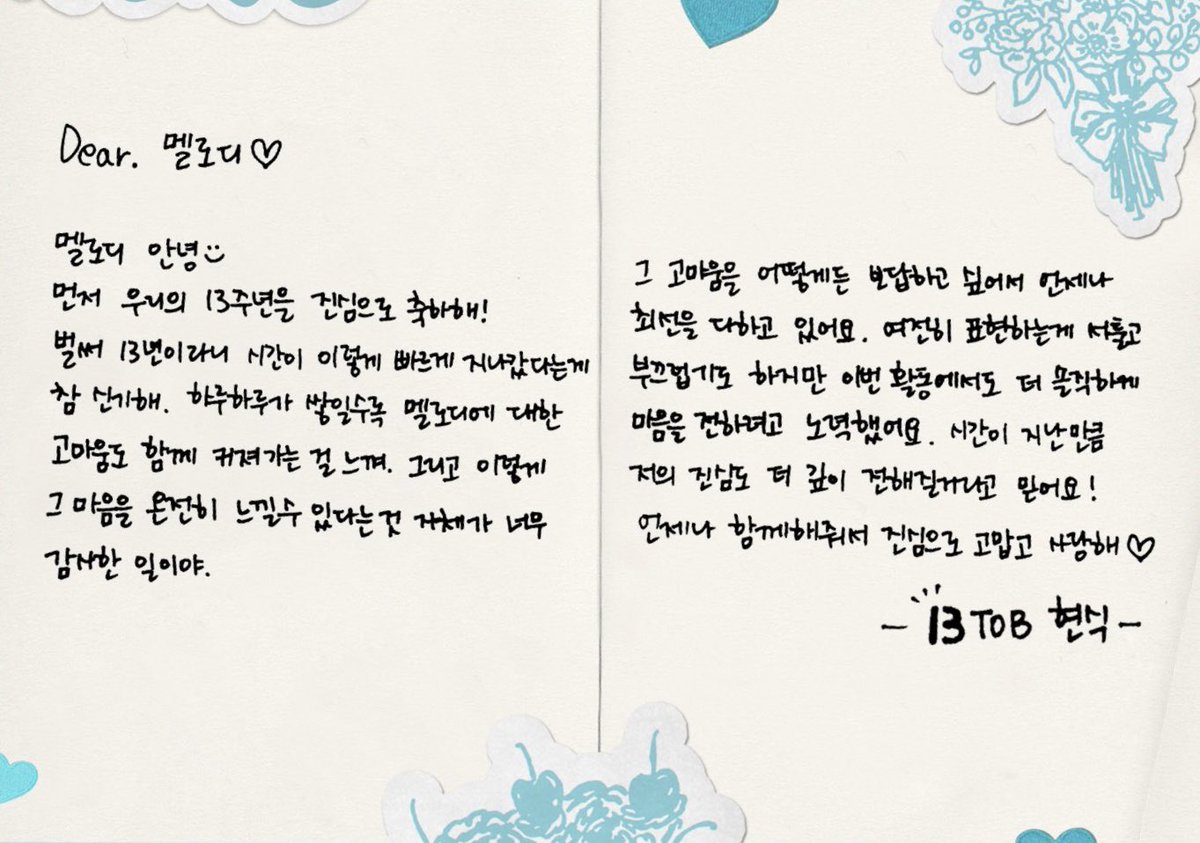 Dear. 멜로디♡
멜로디 안녕:)
먼저 우리의 13주년을 진심으로 축하해!
벌써 13년이라니 시간이 이렇게 빠르게 지나갔다는게
참 신기해. 하루하루가 쌓일수록 멜로디에 대한
고마움도 함께 커져가는 걸 느껴. 그리고 이렇게
그 마음을 온전히 느낄수 있다는것 자체가 너무
감사한 일이야.
그 고마움을 어떻게든 보답하고 싶어서 언제나
최선을 다하고 있어요. 여전히 표현하는게 서툴고
부끄럽기도 하지만 이번 활동에서도 더 솔직하게
마음을 전하려고 노력했어요. 시간이 지난만큼
저의 진심도 더 깊이 전해질거라고 믿어요!
언제나 함께해줘서 진심으로 고맙고 사랑해♡
- 13TOB 현식 -